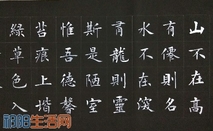 山不在高
有僊則名
水不在深
有龍則靈
斯是陋室
惟吾德馨
苔痕上階
綠草色入
邵阳生活网